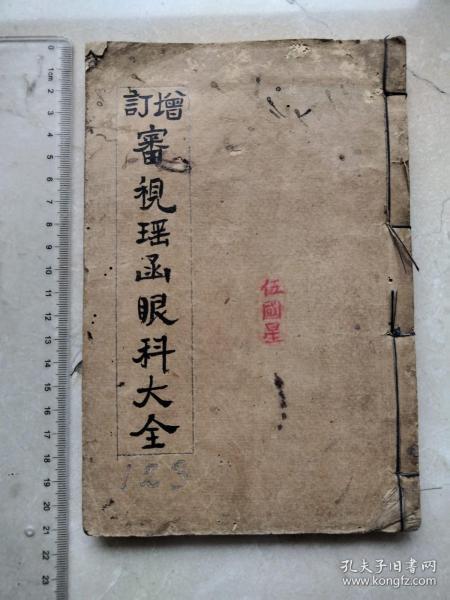 增訂
審視瑶函眼科大全
伍國星
123
0 1cm 2 3 4 5 6 7 8 9 10 11 12 13 14 15 16 17 18 19 20 21 22 23
孔夫子旧书网
www.kongfz.com